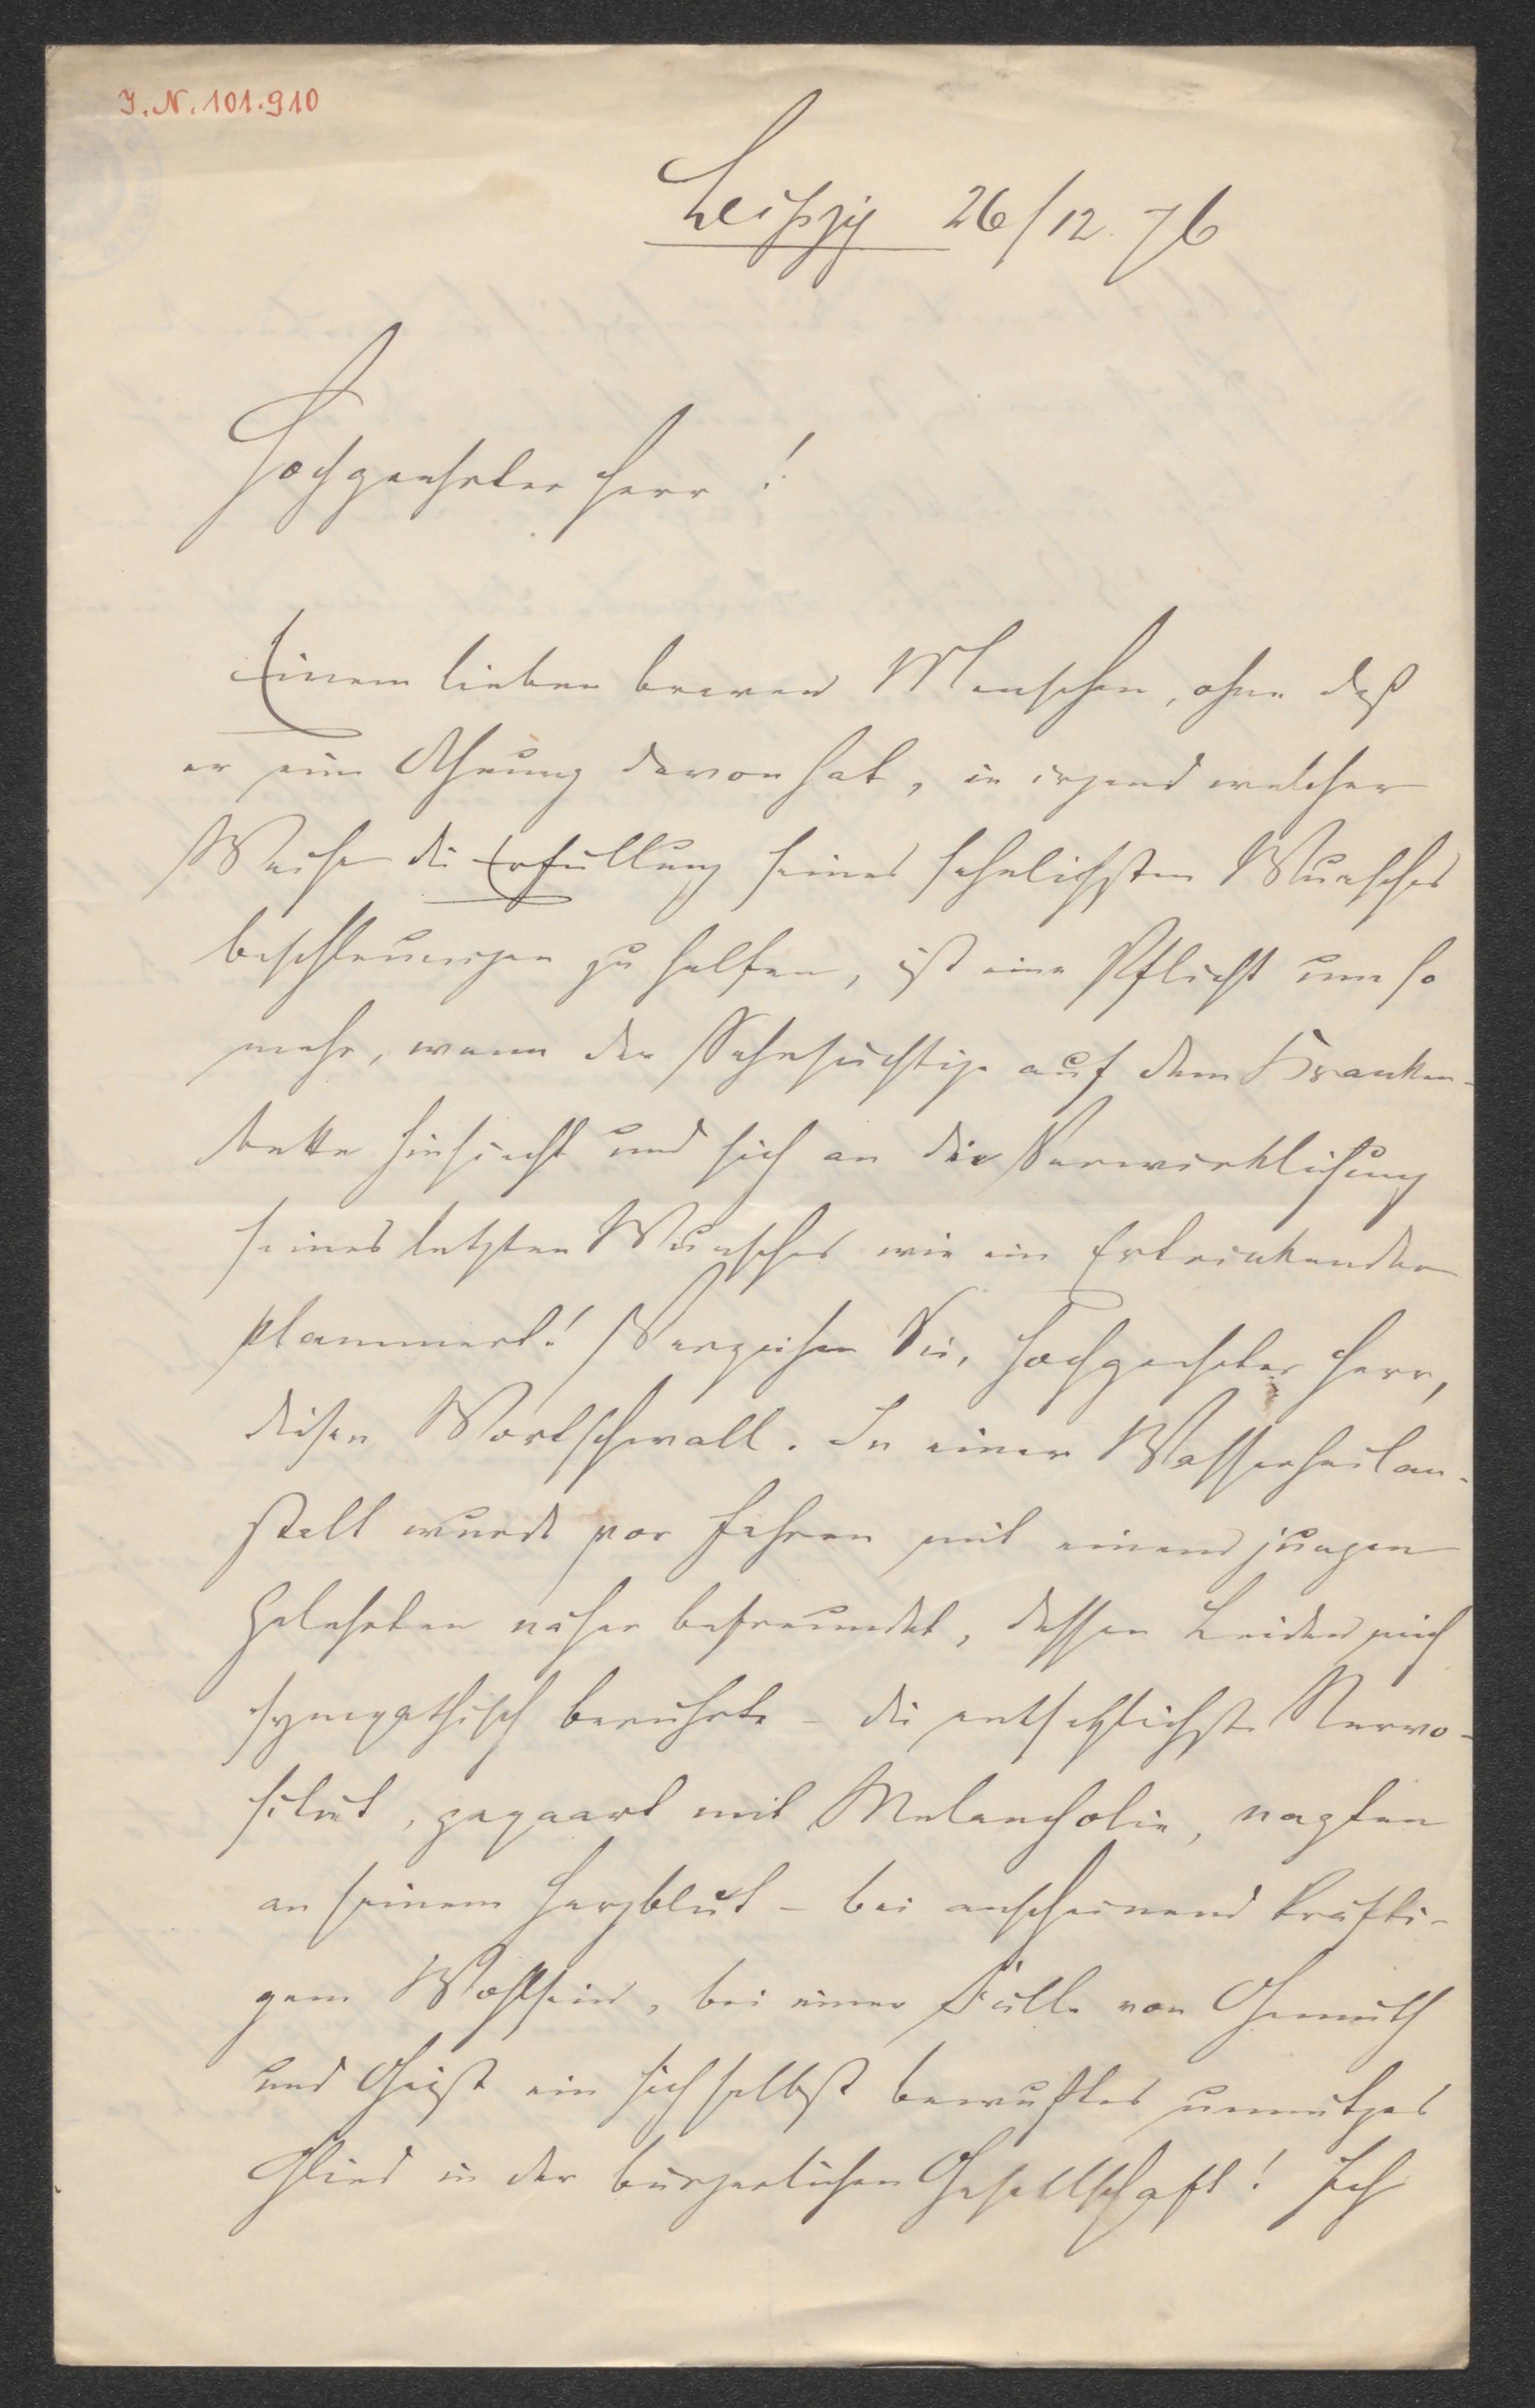 I.N. 101.910
Leipzig 26/12. 76
Hochgeehrter Herr!
Einem lieben braven Menschen, ohne daß
er eine Ahnung davon hat, in irgend welcher
Weise die Erfüllung seines sehnlichsten Wunsches
beschleunigen zu helfen, ist eine Pflicht um so
mehr, wenn der Sehnsüchtige auf dem Kranken-
bette hinsiecht und sich an die Verwirklichung
seines letzten Wunsches wie ein Ertrinkender
klammert! Verzeihen Sie, hochgeehrter Herr,
diesen Wortschwall. In einer Wasserheilan-
stalt wurde vor Jahren mit einem jungen
Gelehrten näher befreundet, dessen Leiden mich
sympathisch berührte – die entsetzlichste Nervo-
sität, gepaart mit Melancholie, nagten
an seinem Herzblut – bei anscheinend kräfti-
gem Wohlsein, bei einer Fülle von Gemüth
und Geist ein sich selbst bewußtes unnützes
Glied in der bürgerlichen Gesellschaft! Ich